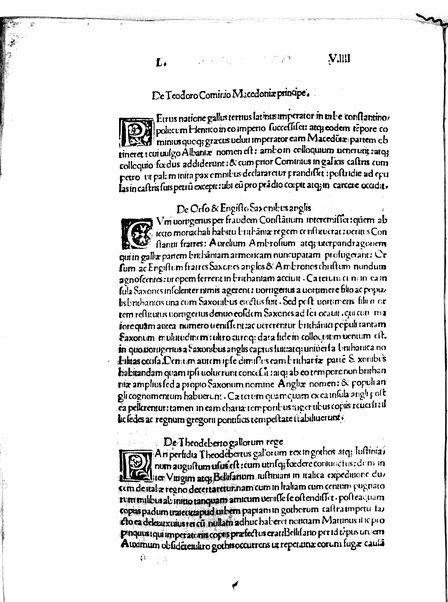 L. V.IIII
De Teodoro Cominio Macedoniæ principe.
PEtrus natione gallus tertius latinus imperator in urbe constantino
polecum Henrico in eo imperio successisset: atq; eodem tēpore co
minius quoq; græcus ueluti imperator eam Macedōiæ partem ob
tineret: cui uulgo Albaniæ nomen est: ambo in colloquium uenerunt: atq;
colloquio fœdus addiderunt: & cum prior Cominius in gallicis castris cum
petro ut palam inita pax omnibus declararetur prandisset: postridie ad epu
las in castris suis petrū excepit: ubi eū pro prādio cœpit atq; in carcere occidit.
De Orso & Engisto Saxonibus anglis
CVm uortigerius per fraudem Constātium interemisset: quem ab
iecto monachali habitu brithāniæ regem constituerat: ueritus Con
stantii fratres: Aurelium Ambrosium atq; uterpandragonem
qui in galliæ partem brithāniam armoricam nuncupatam profugerant: Or
sum ac Engistum fratres Saxones anglos & Ambrones christum nundum
agnoscentes: ut opem ferrent in brithaniam acciuit. Cæterum cum ea in in
sula Saxones insolenter nimis agerent: uortigerius a uortimere filio ac popu
lis brithanicis una cum Saxonibus eiectus fuit. Sed post uortimeris filii mor
tem restitutus uortigerius denuo eosdem Saxones ad se uocauit: qui cum ma
iore quam antea numero uenissent: ac uererentur brithānici populi tantam
Saxonum multitudinem: ultro citroq; data fide in colloquium uentum est.
in quo uortigerius a Saxonibus anglis captus fuit: atq; uniuersa brithanica no
bilitas occisa. Demum autem ipse dimissus eam brithaniæ partē Saxonibus
habitandam quam ipsi uoluerunt concessit: atq; ab eo tempore non brithan
niæ amplius sed a propio Saxonum nomine Angliæ nomen: & populi an
gli cognomentum habuerunt. Cæterum quamquam ex ea insula angli post
ea pellerentur: tamen in eam charta temporibus ingentibus copiis reuersi il
lic sedes ac regnum gregorii pontificis tempestate stabiliuerunt.
De Theodeberto gallorum rege
PAri perfidia Theodebertus gallorum rex in gothos atq; Iustinia
num augustum usus est: cum utrisq; fœdere coniunctus: dum in
liter Vitigim atq; Bellisarium iustiniani in italica expeditione du
cem de italiæ regno decertaretur: nam cum in Italiam cum centum pugnato
rum milibus ab initio tanquam amicum uenisse se ostendisset. postmodum
copias padum traiecit: apud urbem papiam in gothorum castra impetu fa
cto ea deleuit: cuius rei cū nullam adhuc haberet noticiam Martinus il pro
pinquus: qui imperatoriis copiis præfectus erat: Bellisario per id tēpus urbem
Auximum obsidēte: ultro gothis occurrens ut reperit: eorum fugæ causā